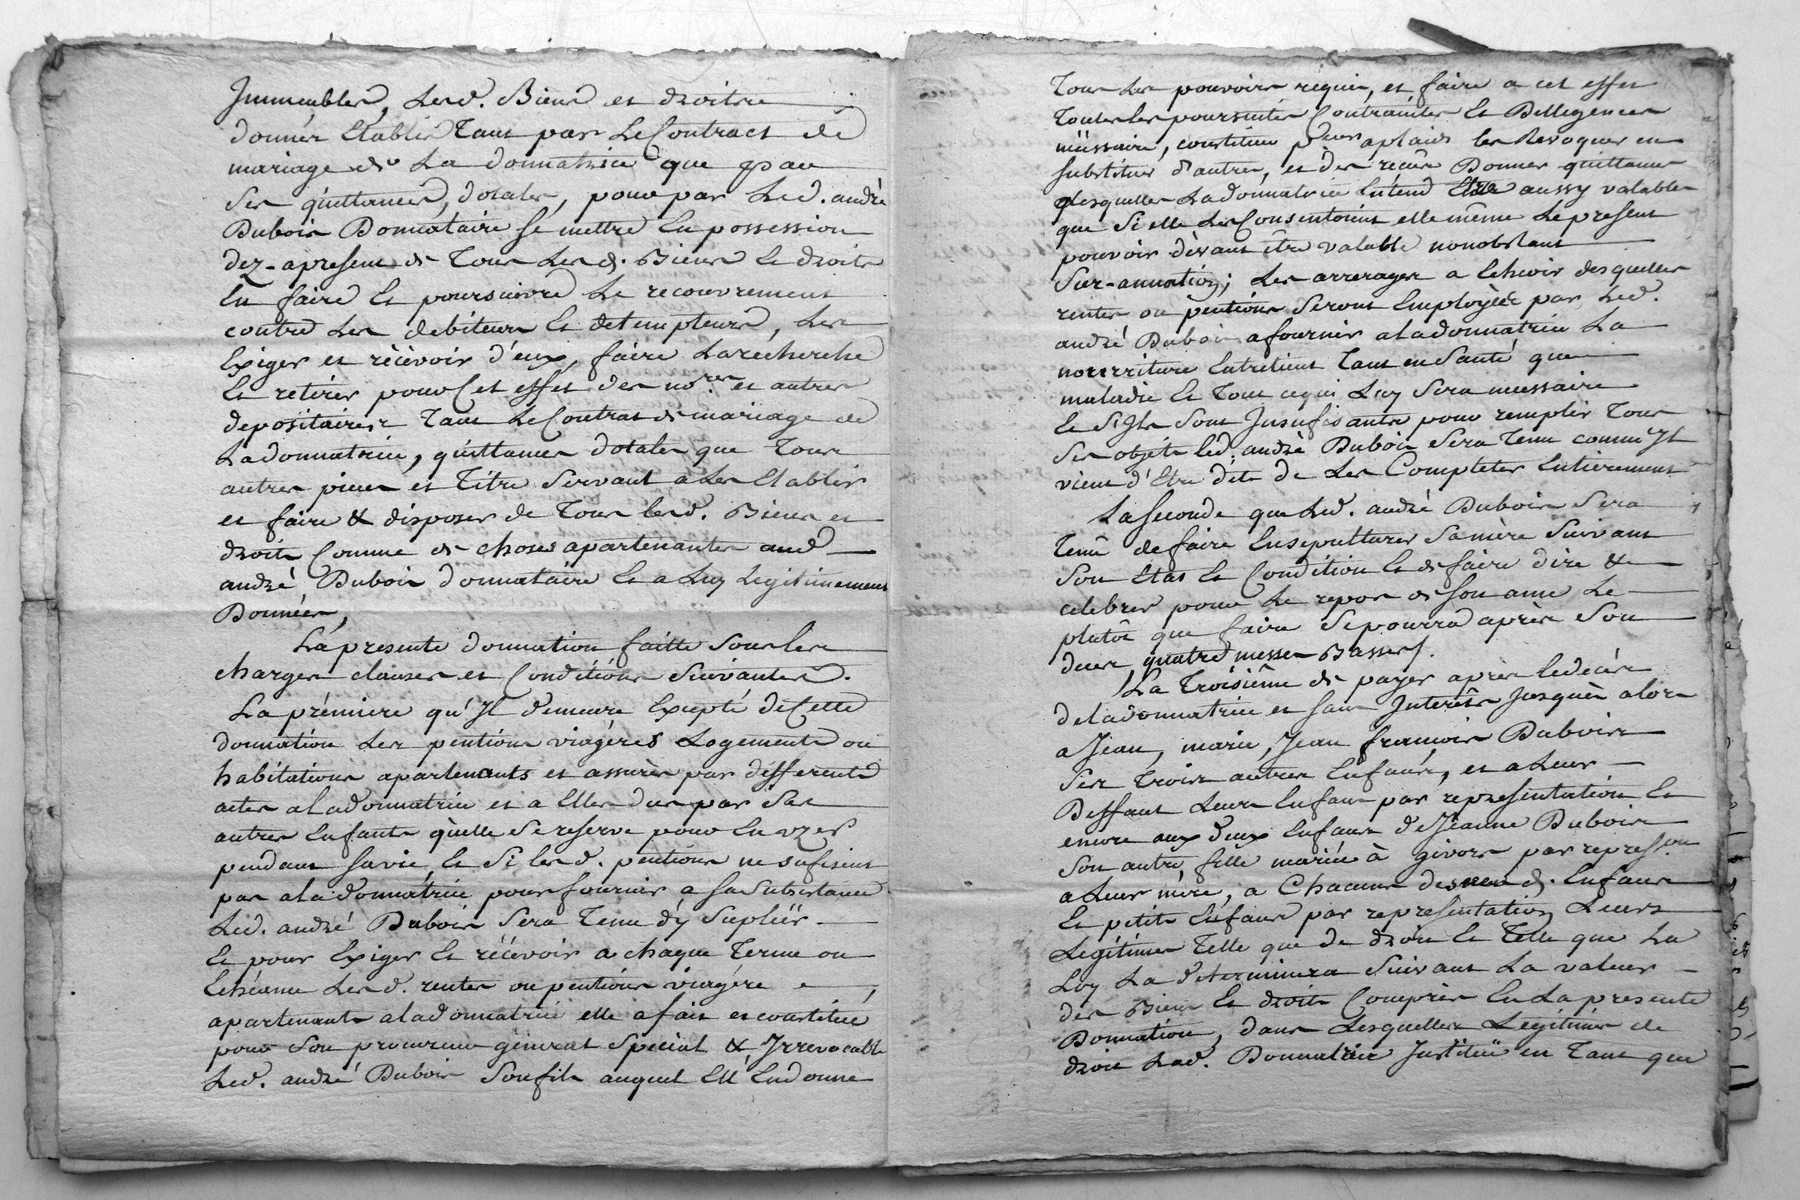 Immeubles, Lesd. Biens et droits
donnés Etablis Tant par Le Contract de
mariage de La donnatrice que par
Ses quittances, dotales, pour par Led. andré
Dubois Donnataire se mettre En possession
dez-apresent de Tous Lesd. Biens Et droits
En faire Et poursuivre Le recouvrement
contre Les debiteurs Et detempteurs, Les
Exiger et récévoir d'eux, faire La recherche
Et retirer pour Cet effet des no.res et autres
depositaires Tant Le Contrat de mariage de
La donnatrice, quittances dotales que Tous
autres pieces et Titre Servant a Les Etablir
et faire & disposer de Tous lesd. Biens et
droits Comme de choses apartenantes aud.
andré Dubois donnataire Et a Luy Legitimement
Données,
La présente donnation faitte Sous les
charges clauses et Conditions Suivantes.
La prémiere qu'Il demeure Exepté de Cette
donnation Les pentions viagéres Logements ou
habitations apartenants et assurés par differents
actes a la donnatrice et a Elles dus par Ses
autres Enfants qu'elle Se reserve pour En uzer
pendant sa vie, Et Si lesd. pentions ne sufisent
pas a la donnatrice pour fournir a Sa Subsistance
Led. andré Dubois Sera Tenu d'y Supleer
Et pour Exiger Et récévoir a chaque Terme ou
Echéance Lesd. rentes ou pentions viagére
apartenants a la donnatrice elle a fait et constitué
pour Son procureur géneral Spécial & Irrevocable
Led. andré Dubois Son fils auquel Ell' En donne
Tous Les pouvoirs réquis, et faire a cet effet
Toutes les poursuites Contraintes Et Dilligences
nécessaire, constituer p.eurs a plaids les Revoquer en
substituer d'autres, et des recûs Donner quittances
Lesquelles La donnatrice Entend Etre aussy valables
que Si elle Les Consentoient elle même Le present
pouvoir dévant être valable nonobstant
Sur-annation; Les arrerages a Echeoir desquelles
rentes ou pentions Seront Employées par Led.
andré Dubois a fournir a la donnatrice La
nourriture Entretient Tant en Santé que
maladie Et Tout ce qui Luy Sera necessaire
Et S'Ils Sont Insufisants pour remplir Tous
Ses objets led. andré Dubois Sera Tenu comme Il
vient d'Etre dit de Les Completer Entierement
La Seconde que Led. andré Dubois Sera
Tenû de faire Ensepulturer Sa mère Suivant
Son Etat Et Condition Et de faire dire &
celebrer pour Le repos de Son ame Le
plutôt que faire Se pourra après Son
deces quatre messes Basses.
La Troisiême de payer après le decés
de La donnatrice et Sans Interêts Jusqu'à alors
a Jean, marie, Jean francois Dubois
Ses Trois autres Enfans, et a Leur
Deffaut Leurs Enfans par representation Et
encore aux deux Enfans de Jeanne Dubois
Son autre fille mariée à givors par repres.on
a Leur mère, a Chacuns desd. Enfans
Et petits Enfans par representation Leurs
Legitimes Telle que de droit Et Telle que La
Loy La determinera Suivant La valeur
des Biens Et droits Compris En La presente
Donnation, dans Lesquelles Legitimes de
droit Lad. Donnatrice Institue en Tant que